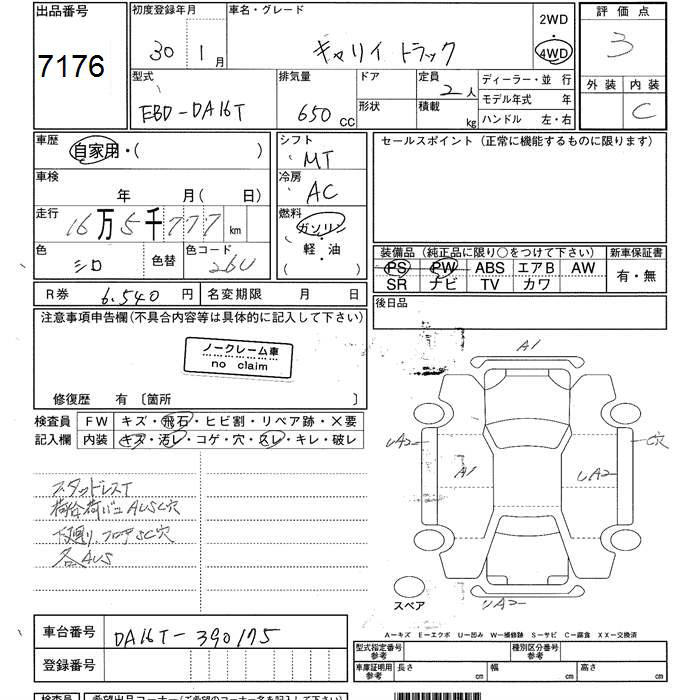 出品番号 初度登録年月 車名・グレード 2WD 評価点
7176 30年 1月 キャリイ トラック 4WD 3
型式 排気量 ドア 定員 2人 ディーラー・並行 外装 内装
EBD-DA16T 650cc 形状 積載 kg モデル年式 年 C
ハンドル 左・右
車歴 自家用・( ) シフト MT セールスポイント (正常に機能するものに限ります)
車検 年 月 ( 日) 冷房 AC
走行 16万5千777km 燃料 ガソリン
軽・油
( )
色 シロ 色替 色コード 26U 装備品 (純正品に限り○をつけて下さい) 新車保証書
PS PW ABS エアB AW 有・無
SR ナビ TV カワ
R券 6.540円 名変期限 月 日 後日品
注意事項申告欄(不具合内容等は具体的に記入して下さい)
ノークレーム車
no claim
修復歴 有 〔箇所 〕
検査員 FW キズ・飛石・ヒビ割・リペア跡・×要
記入欄 内装 キズ・汚レ・コゲ・穴・スレ・キレ・破レ
A1
UA2 A1 UA2 穴
スタッドレスT
下廻り、フロアSC穴
各AUS
スペア UA2
A=キズ E=エクボ U=凹み W=補修跡 S=サビ C=腐食 XX=交換済
車台番号 DA16T-390175 型式指定番号 参考 種別区分番号 参考
登録番号 車庫証明用 参考 長さ cm 幅 cm 高さ cm
検査員 希望出品コーナー(ご希望のコーナー名を記入下さい)